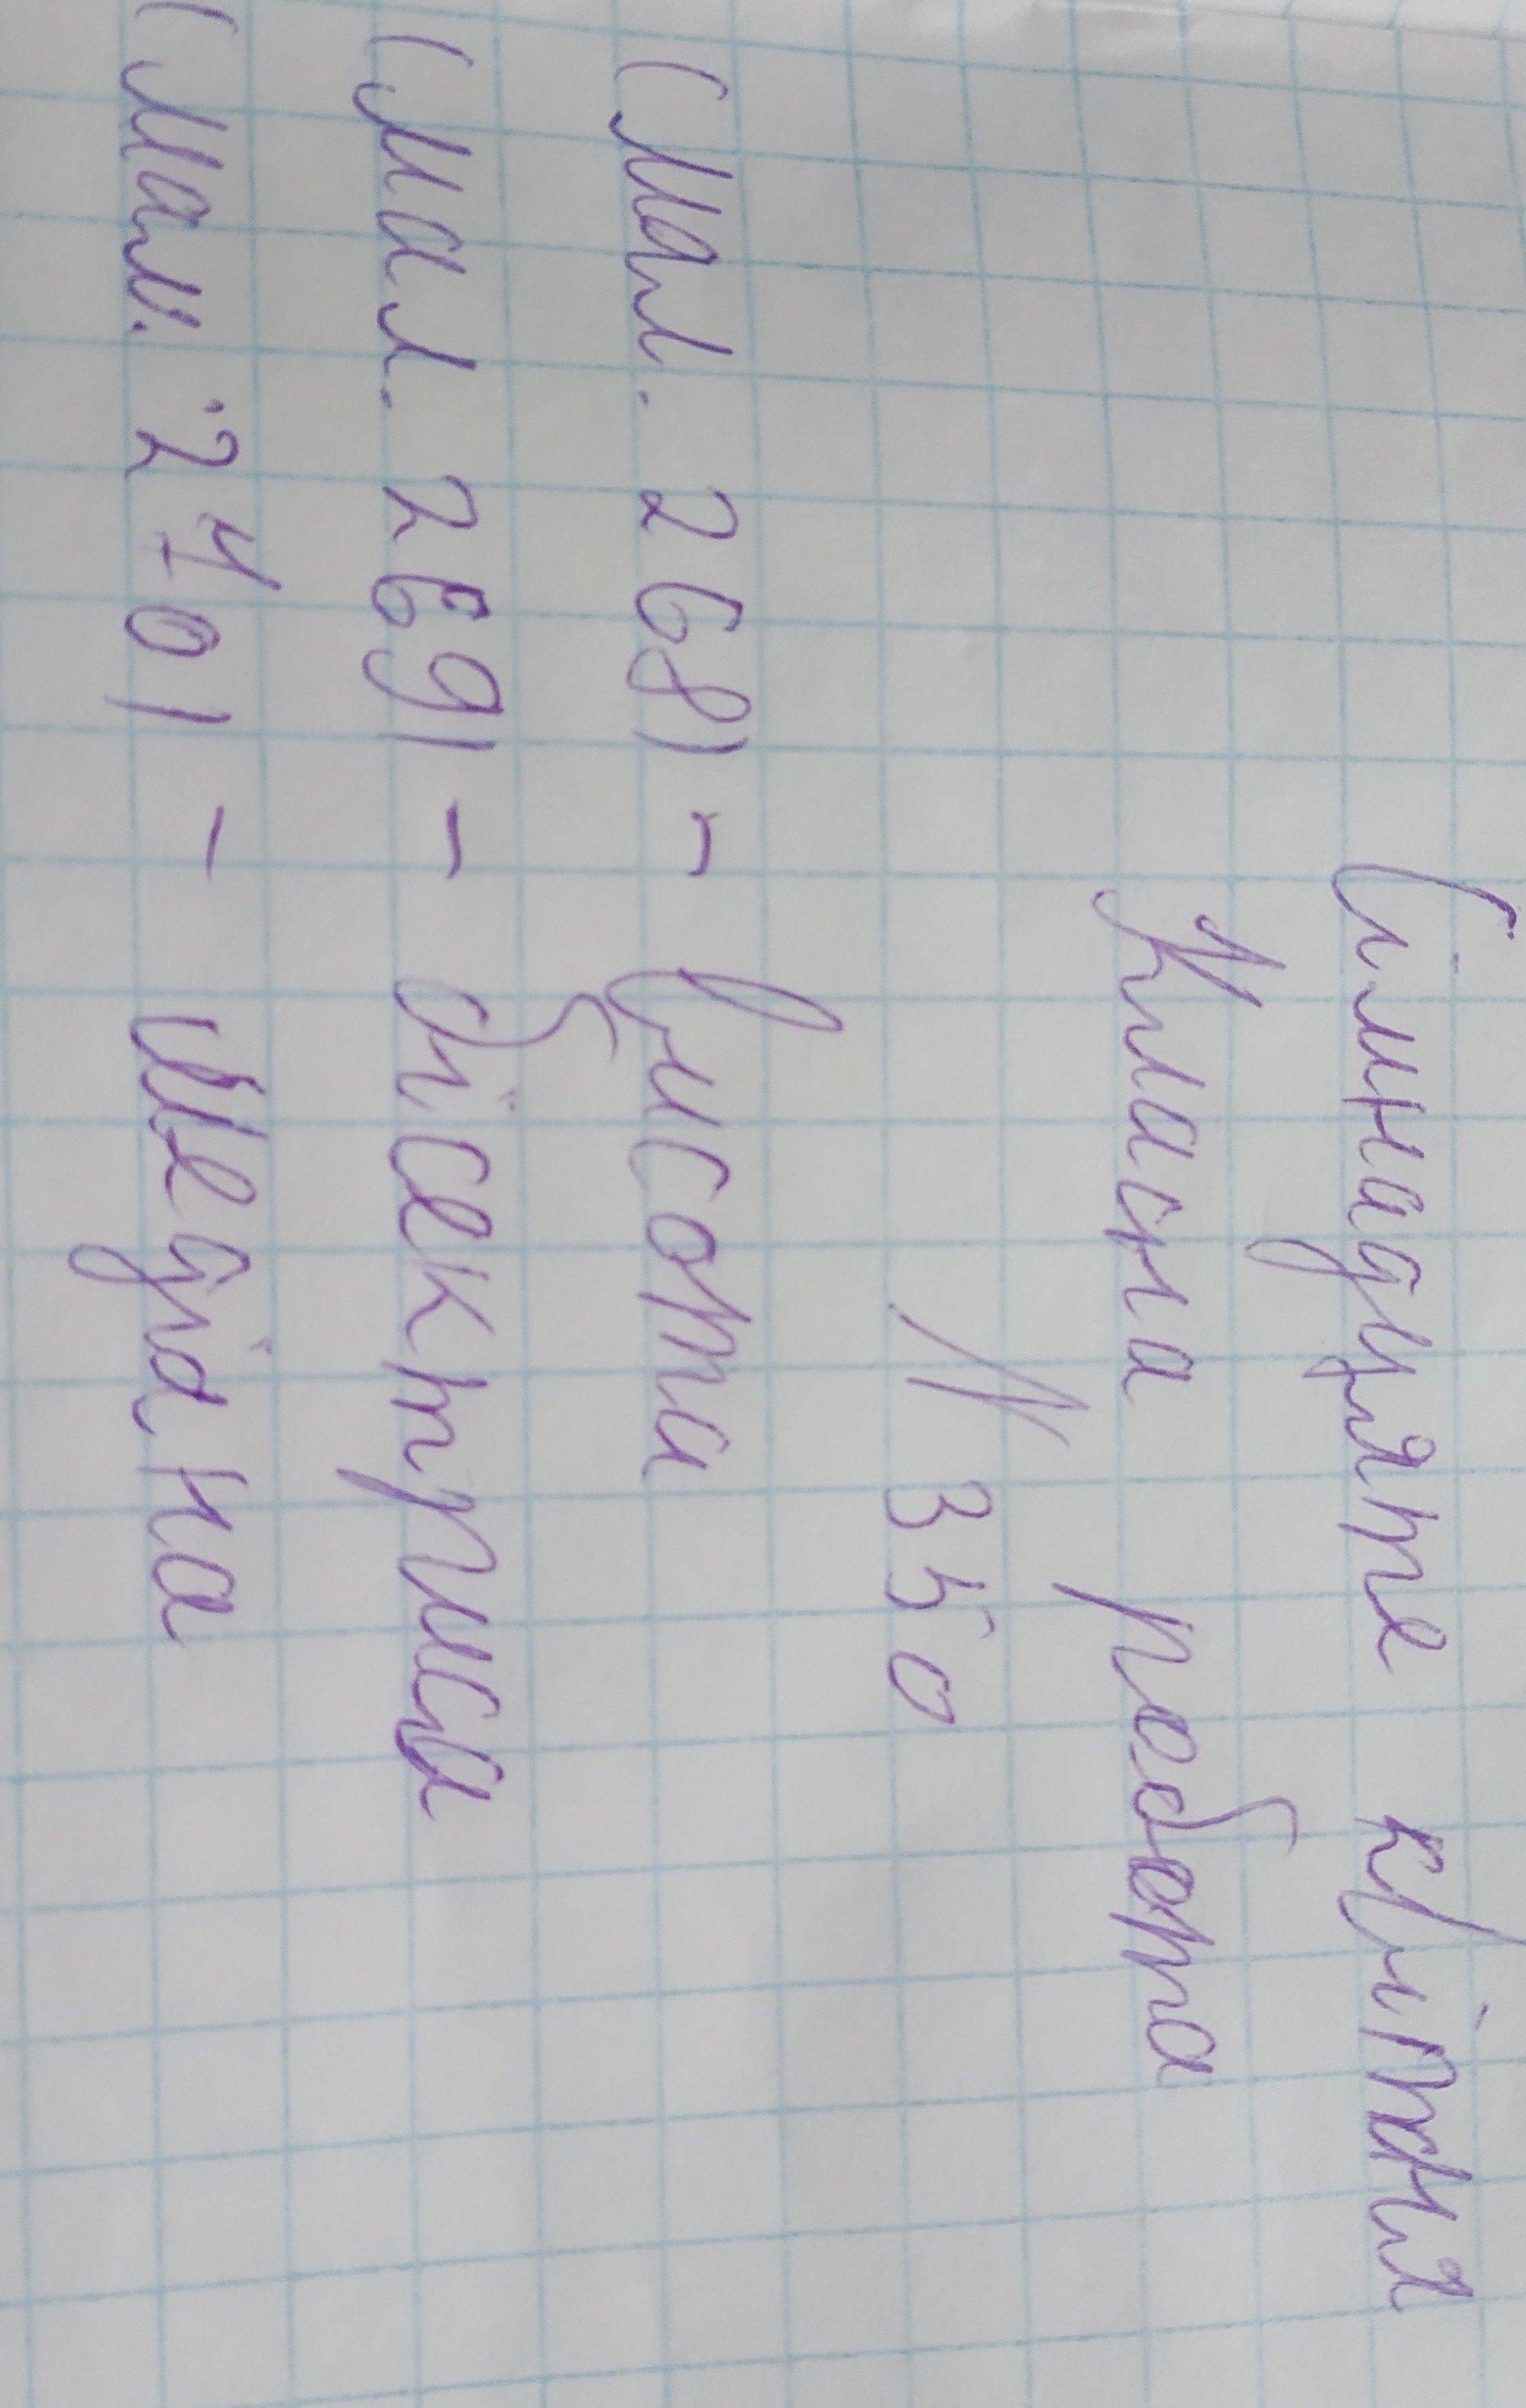 Сімнадцяте квітня
Класна робота
№ 350
(Мал. 268) - висота
(Мал. 269) - бісектриса
(Мал. 270) - медіана